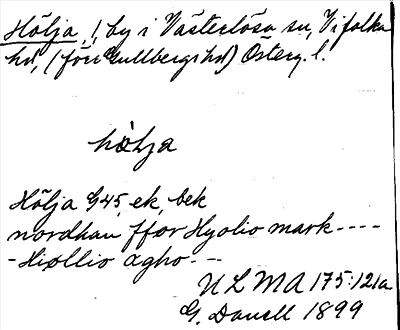 Hölja, !, by i Västerlösa sn, Vifolka
hd, (förr Gullbergs hd) Österg. l.
hòlja
Hölja G45, ek, bek
nordhan ffor Hyolio mark----
-Hiøllio agho. --
ULMA 175:121a
G. Danell 1899